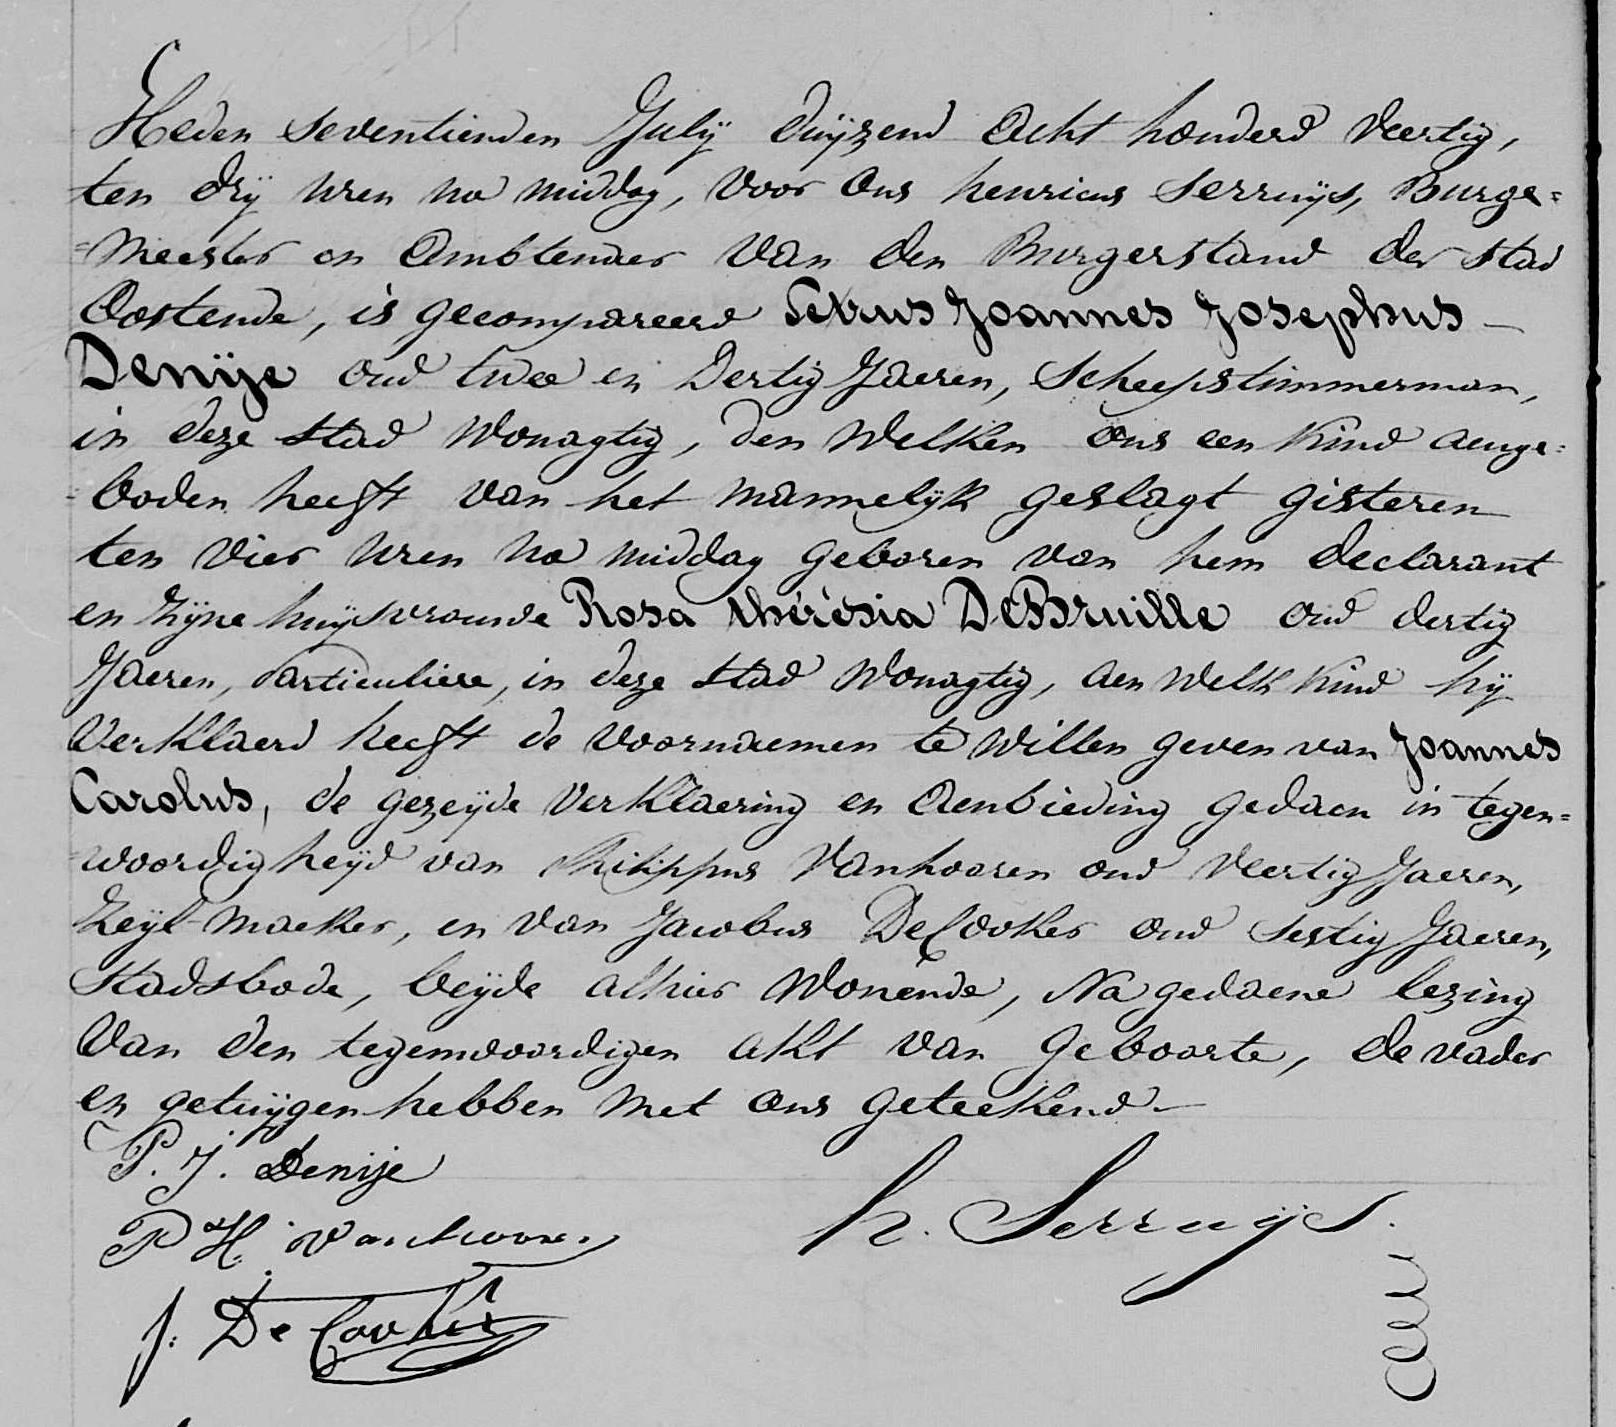 Heden seventienden July duyzend acht honderd veertig,
ten dry uren na middag, voor ons henricus Serruys, Burge=
=meester en Ambtenaer van den Burgerstand der stad
Oostende, is gecompareerd Petrus Joannes Josephus –
Denije oud twee en dertig Jaeren, Scheepstimmerman,
in deze stad wonagtig, den welken ons een kind aenge=
=boden heeft van het mannelyk geslagt gisteren
ten vier uren na middag geboren van hem declarant
en zyne huysvrouwe Rosa thérésia DeBruille oud dertig
Jaeren, particuliere, in deze stad wonagtig, aen welk kind hy
verklaerd heeft de voornaemen te willen geven van Joannes
Carolus, de gezeyde verklaering en aenbieding gedaen in tegen=
=woordigheyd van Philippus Vanhooren oud veertig Jaeren,
Zeyl-maeker, en van Jacobus DeCooker oud sestig Jaeren,
Stadsbode, beyde alhier wonende, Na gedaene lezing
van den tegenwoordigen akt van geboorte, de vader
en getuygen hebben met ons geteekend –
P. J. Denije
P H. Vanhooren
h. Serruys.
J. De Cooker